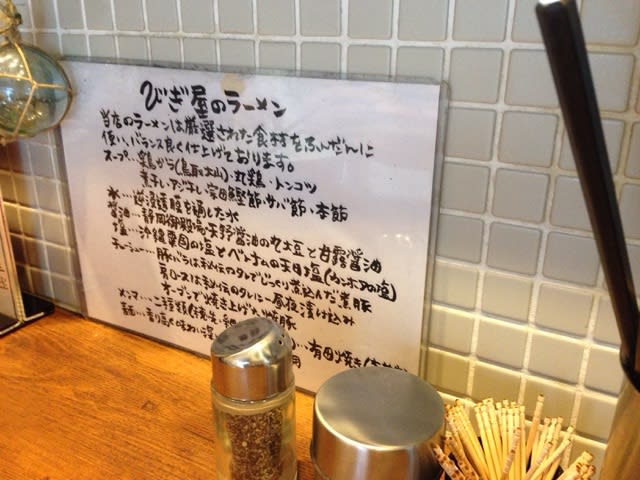 びぎ屋のラーメン
当店のラーメンは厳選された食材をふんだんに
使い、バランス良く仕上げております。
スープ…鶏がら(鳥取大山)・丸鶏・トンコツ
煮干し・アジ干し・宗田鰹節・サバ節・本節
水…逆浸透膜を通した水
醤油…静岡御殿場天野醤油の丸大豆と甘露醤油
塩…沖縄粟国の塩とベトナムの天日塩(カンホアの塩)
チャーシュー…豚バラは秘伝のタレでじっくり煮込んだ煮豚
肩ロースは秘伝のタレに一晩夜漬け込み
オーブンで焼き上げた焼豚
メンマ…二種類(穂先・細
麺…香り高く味わい深い
有田焼き